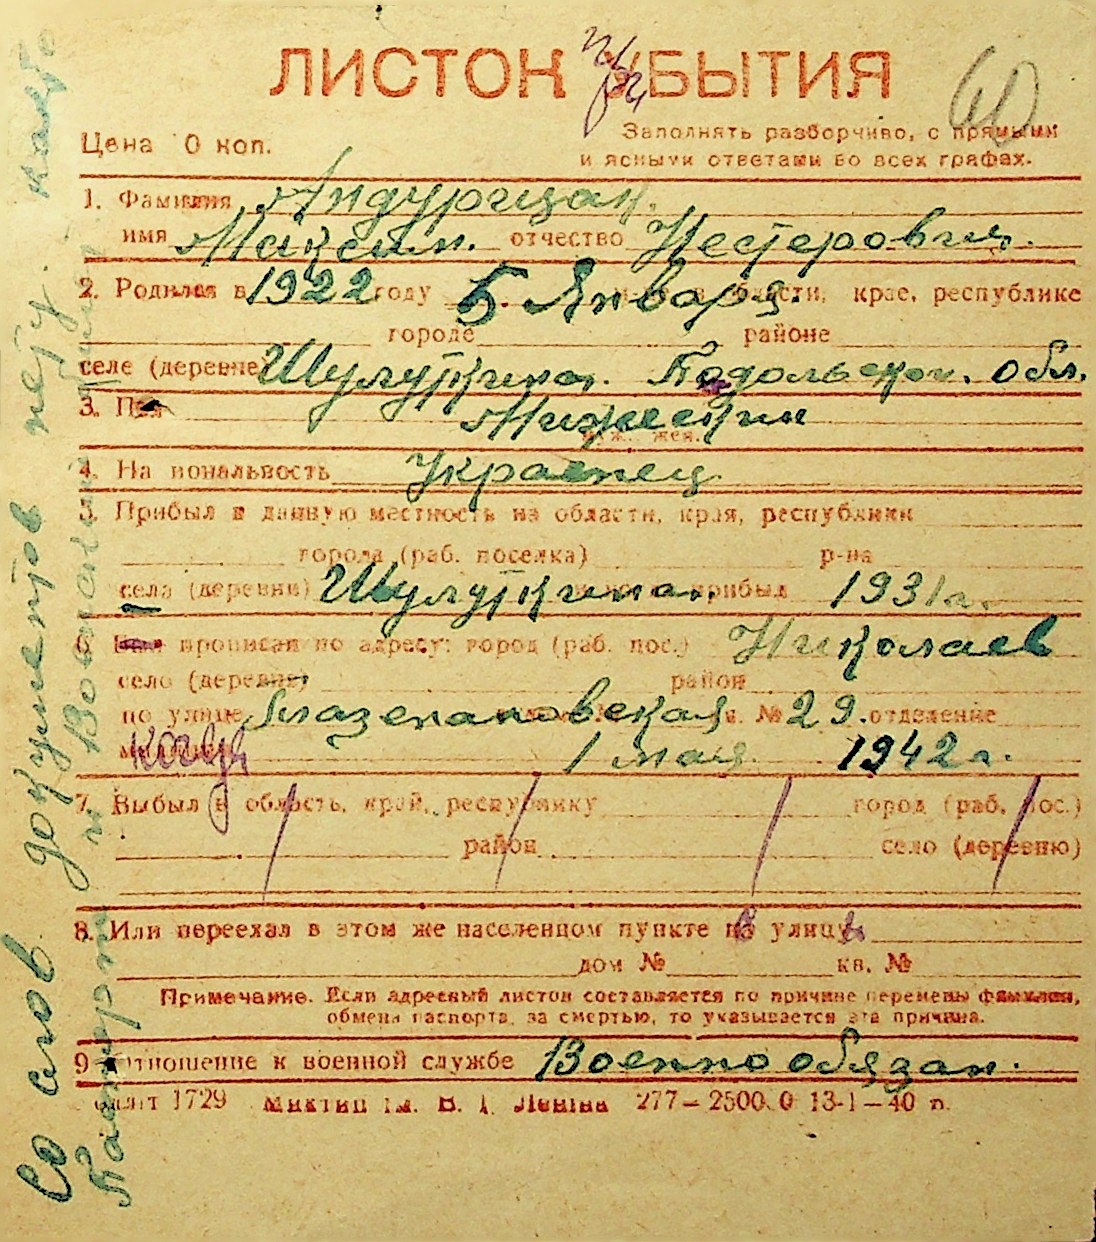 ЛИСТОК УБЫТИЯ
60
Цена 0 коп.
Заполнять разборчиво, с прямыми
и ясными ответами во всех графах.
1. Фамилия Андурицан.
имя Максим. отчество Нестерович.
2. Родился в 1922 году 5 Января области, крае, республике
городе районе
селе (деревне) Шулуткина. Подольской. обл.
3. Пол Мужеский
муж. жен.
4. Национальность Украенец
5. Прибыл в данную местность из области, края, республики
города (раб. поселка) р-на
села (деревни) Шулуткина прибыл 1931 г.
6. прописан по адресу: город (раб. пос.) Николаев
село (деревня) район
по улице кв. № 29. отделение
милиции когда 1 мая 1942 г.
7. Выбыл в область, край, республику город (раб. пос.)
район село (деревню)
8. Или переехал в этом же населенном пункте на улицу
дом № кв. №
Примечание. Если адресный листок составляется по причине перемены фамилии,
обмена паспорта, за смертью, то указывается эта причина.
9. Отношение к военной службе Военно обязан.
1729 им. В. І. Леніна 277—2500.0 13-1—40 п.
Со слов документов нету.
Паспорт и Военый